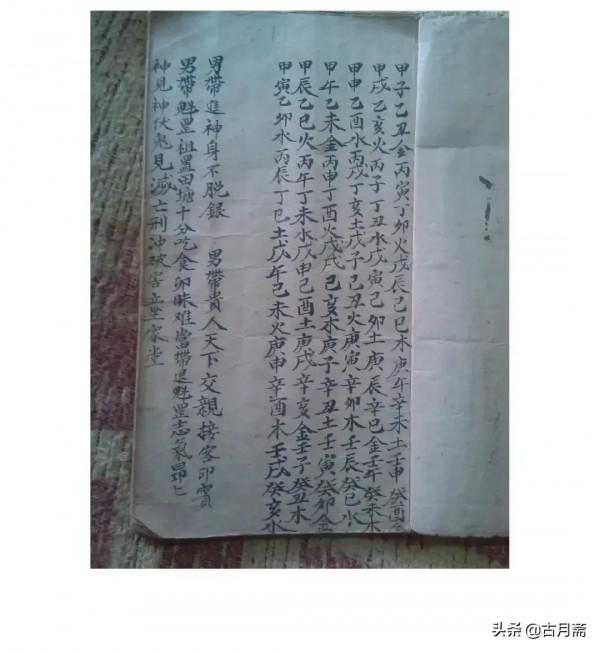 甲子乙丑金丙寅丁卯火戊辰己巳木庚午辛未土壬申癸酉金
甲戌乙亥火丙子丁丑水戊寅己卯土庚辰辛巳金壬午癸未木
甲申乙酉水丙戌丁亥土戊子己丑火庚寅辛卯木壬辰癸巳水
甲午乙未金丙申丁酉火戊戌己亥木庚子辛丑土壬寅癸卯金
甲辰乙巳火丙午丁未水戊申己酉土庚戌辛亥金壬子癸丑木
甲寅乙卯水丙辰丁巳土戊午己未火庚申辛酉木壬戌癸亥水
男帶進神身不脫銀 男帶貴人天下交親接客印賓
男帶魁罡祖置田塘十分吃食卯昧难當帶魁罡志氣昂匕
神見神伏鬼見滅亡刑沖破害立家堂
头条 @古月斋